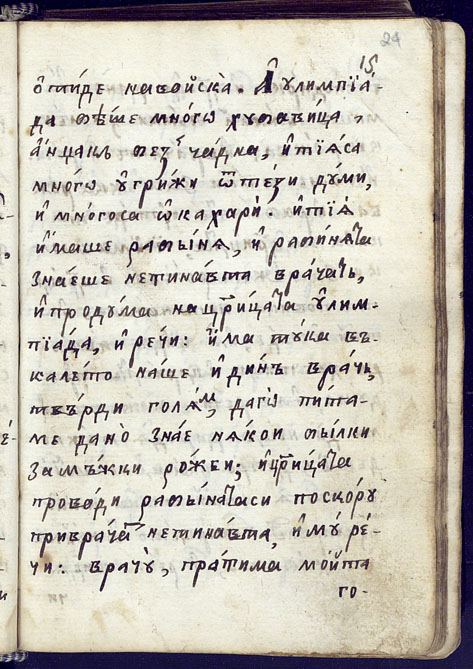 24
15
ѻ҆ти́де навойска̀. А҆ ѹ҆лимпїа́-
да бѣ́ше мно́гѡ хꙋбавица,
а҆нцакъ без̾ ча́дна, и҆ тїѧ́са
мно́гѡ ѹ҆грижи ѿ те́зи дꙋми,
и҆ мно́госа ѡ҆кахари̏. и҆ тїѧ̀
и҆́маше рабы́нѧ, и҆ рабинѧ́та
зна́еше нетина́вта вра́чатъ,
и҆ продꙋ́ма на цр҃и́цата ѹ҆лим-
пїа́да, и҆ ре́чи: и҆́ма тꙋ́ка въ-
кале́то на́ше и҆ди́нъ вра́чъ,
твъ́рди голѧ́м, да гѡ̀ пи́та-
ме дано̀ зна́е нѧ́кои бы́лки
за мъ́жки ро́жби; и҆ цр҃и́цата
прово́ди рабы́натаси по ско́рꙋ
при врача̀т нетина́вта, и҆ мꙋ̀ ре́-
чи: вра́чꙋ, пра́тима мо́йта
го-